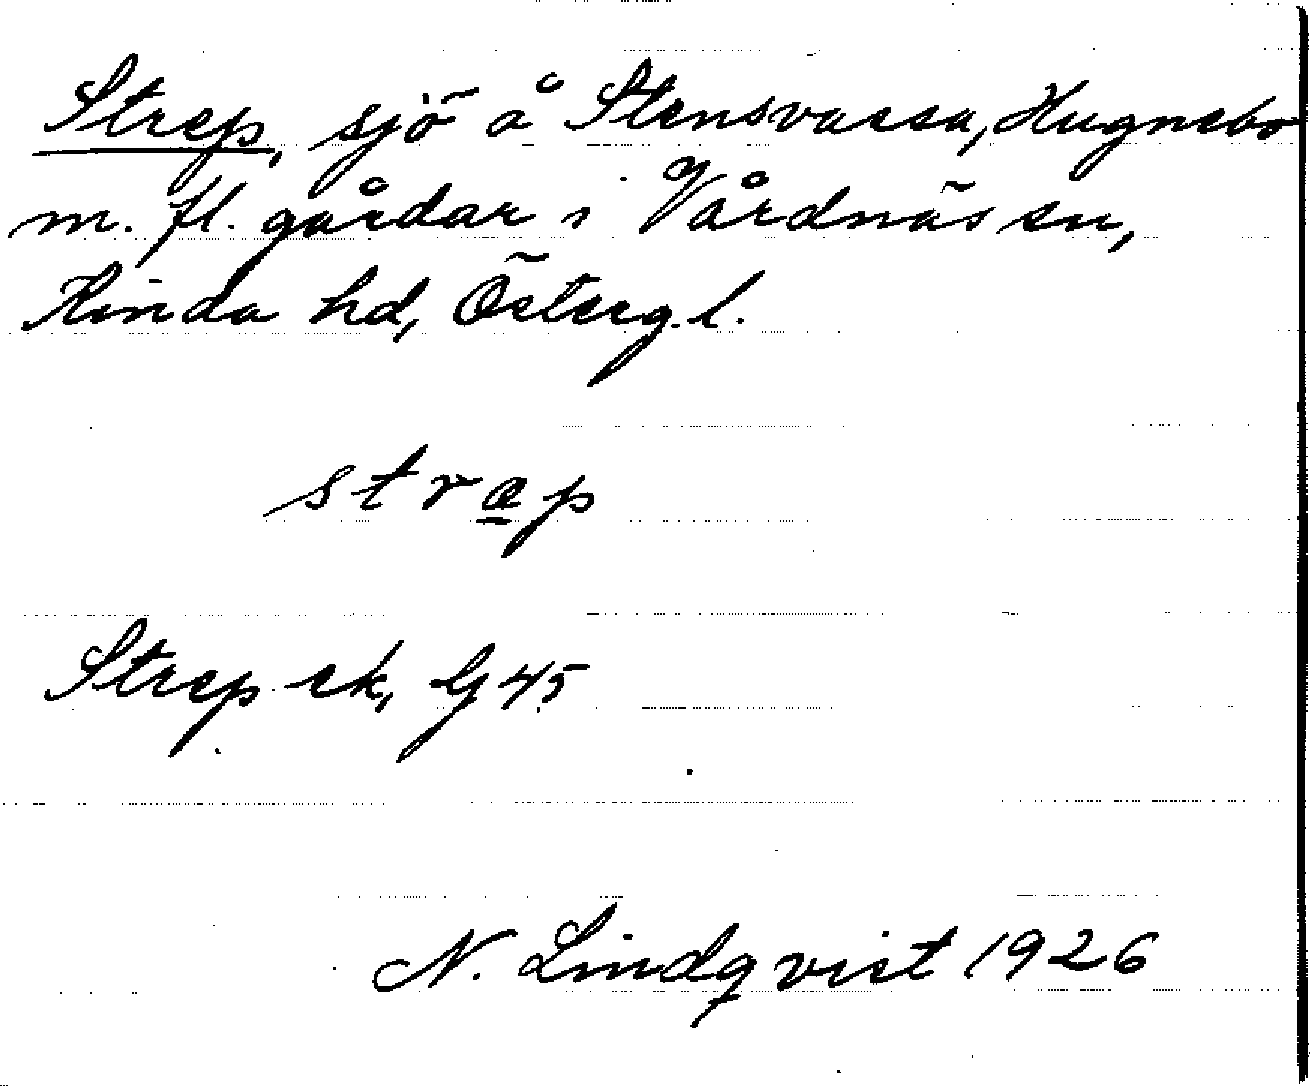 Strep, sjö å Stensvassa, Hugnebo
m. fl. gårdar i Vårdnäs sn,
Kinda hd, Österg.l.
stræp
Strep ek, G 45
N. Lindqvist 1926